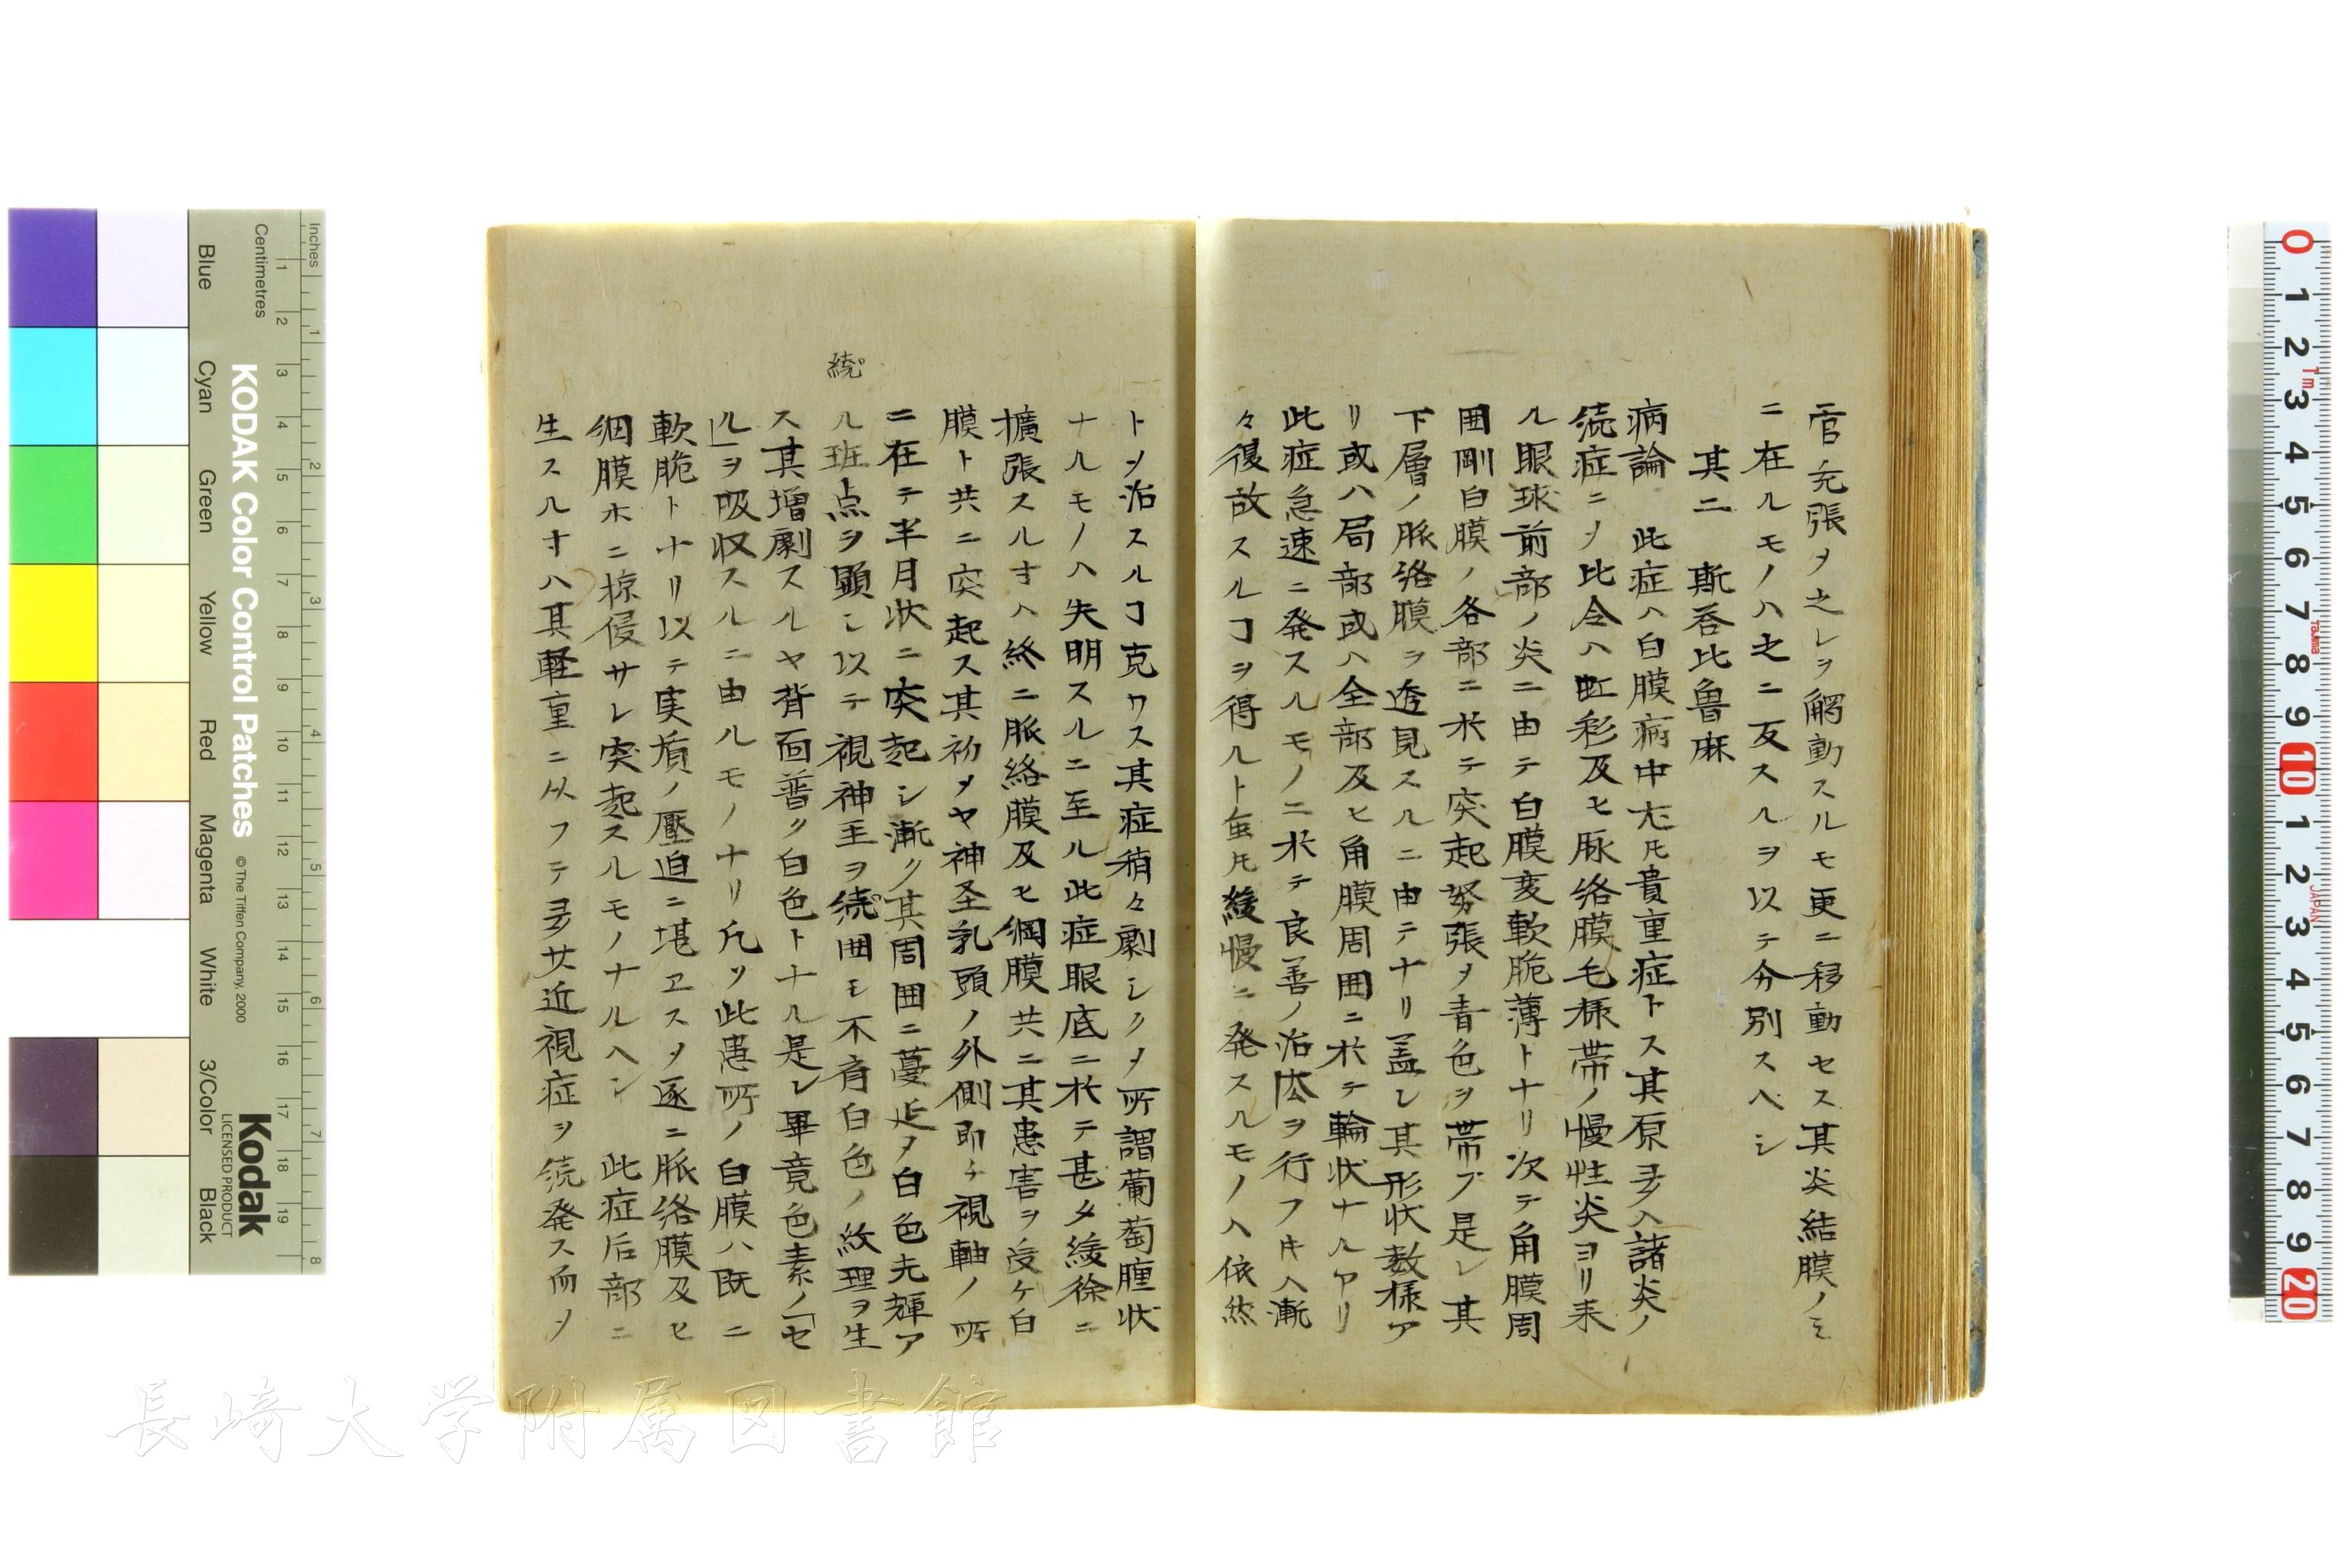 官充張ヲ之レヲ觸動スルモ更ニ移動セス其炎結膜ノミ
ニ在ルモノハ之ニ反スルヲ以テ分別スヘシ
其二 斯呑比魯麻
病論 此症ハ白膜病中尤𪜈貴重症トス其原多クハ諸炎ノ
続症ニ〆比令ハ虹彩及ヒ脈絡膜毛様帯ノ慢性炎ヨリ来
ル眼球前部ノ炎ニ由テ白膜変軟脆薄トナリ次テ角膜周
囲剛白膜ノ各部ニ於テ突起努張〆青色ヲ帯フ是レ其
下層ノ脈絡膜ヲ透見スルニ由テナリ盖シ其形状数様ア
リ或ハ局部或ハ全部及ヒ角膜周囲ニ於テ輪状ナルアリ
此症急速ニ発スルモノニ於テ良善ノ治法ヲ行フキハ漸
々復故スルヿヲ得ルト雖𪜈緩慢ニ発スルモノハ依然
ト〆治スルヿ克ワス其症稍々劇シク〆所謂葡萄腫状
ナルモノハ失明スルニ至ル此症眼底ニ於テ甚タ緩徐ニ
擴張スルオハ終ニ脈絡膜及ヒ網膜共ニ其患害ヲ受ケ白
膜ト共ニ突起ス其初メヤ神圣乳頭ノ外側即チ視軸ノ所
ニ在テ半月状ニ突起シ漸ク其周囲ニ蔓延〆白色光輝ア
ル班点ヲ顕シ以テ視神圣ヲ繞囲モ不斉白色ノ紋理ヲ生
繞
ス其増劇スルヤ背面普ク白色トナル是レ畢竟色素ノ「セ
ル」ヲ吸収スルニ由ルモノナリ凡ソ此患所ノ白膜ハ既ニ
軟脆トナリ以テ実質ノ壓迫ニ堪エス〆逐ニ脈絡膜及ヒ
網膜ホニ掠侵サレ突起スルモノナルヘシ 此症后部ニ
生スルオハ其軽重ニ从フテ多少近視症ヲ続発ス而〆
KODAK Color Control Patches
© The Tiffen Company, 2000
Kodak
LICENSED PRODUCT
Inches
Centimetres
Blue
Cyan
Green
Yellow
Red
Magenta
White
3/Color
Black
長崎大学附属図書館